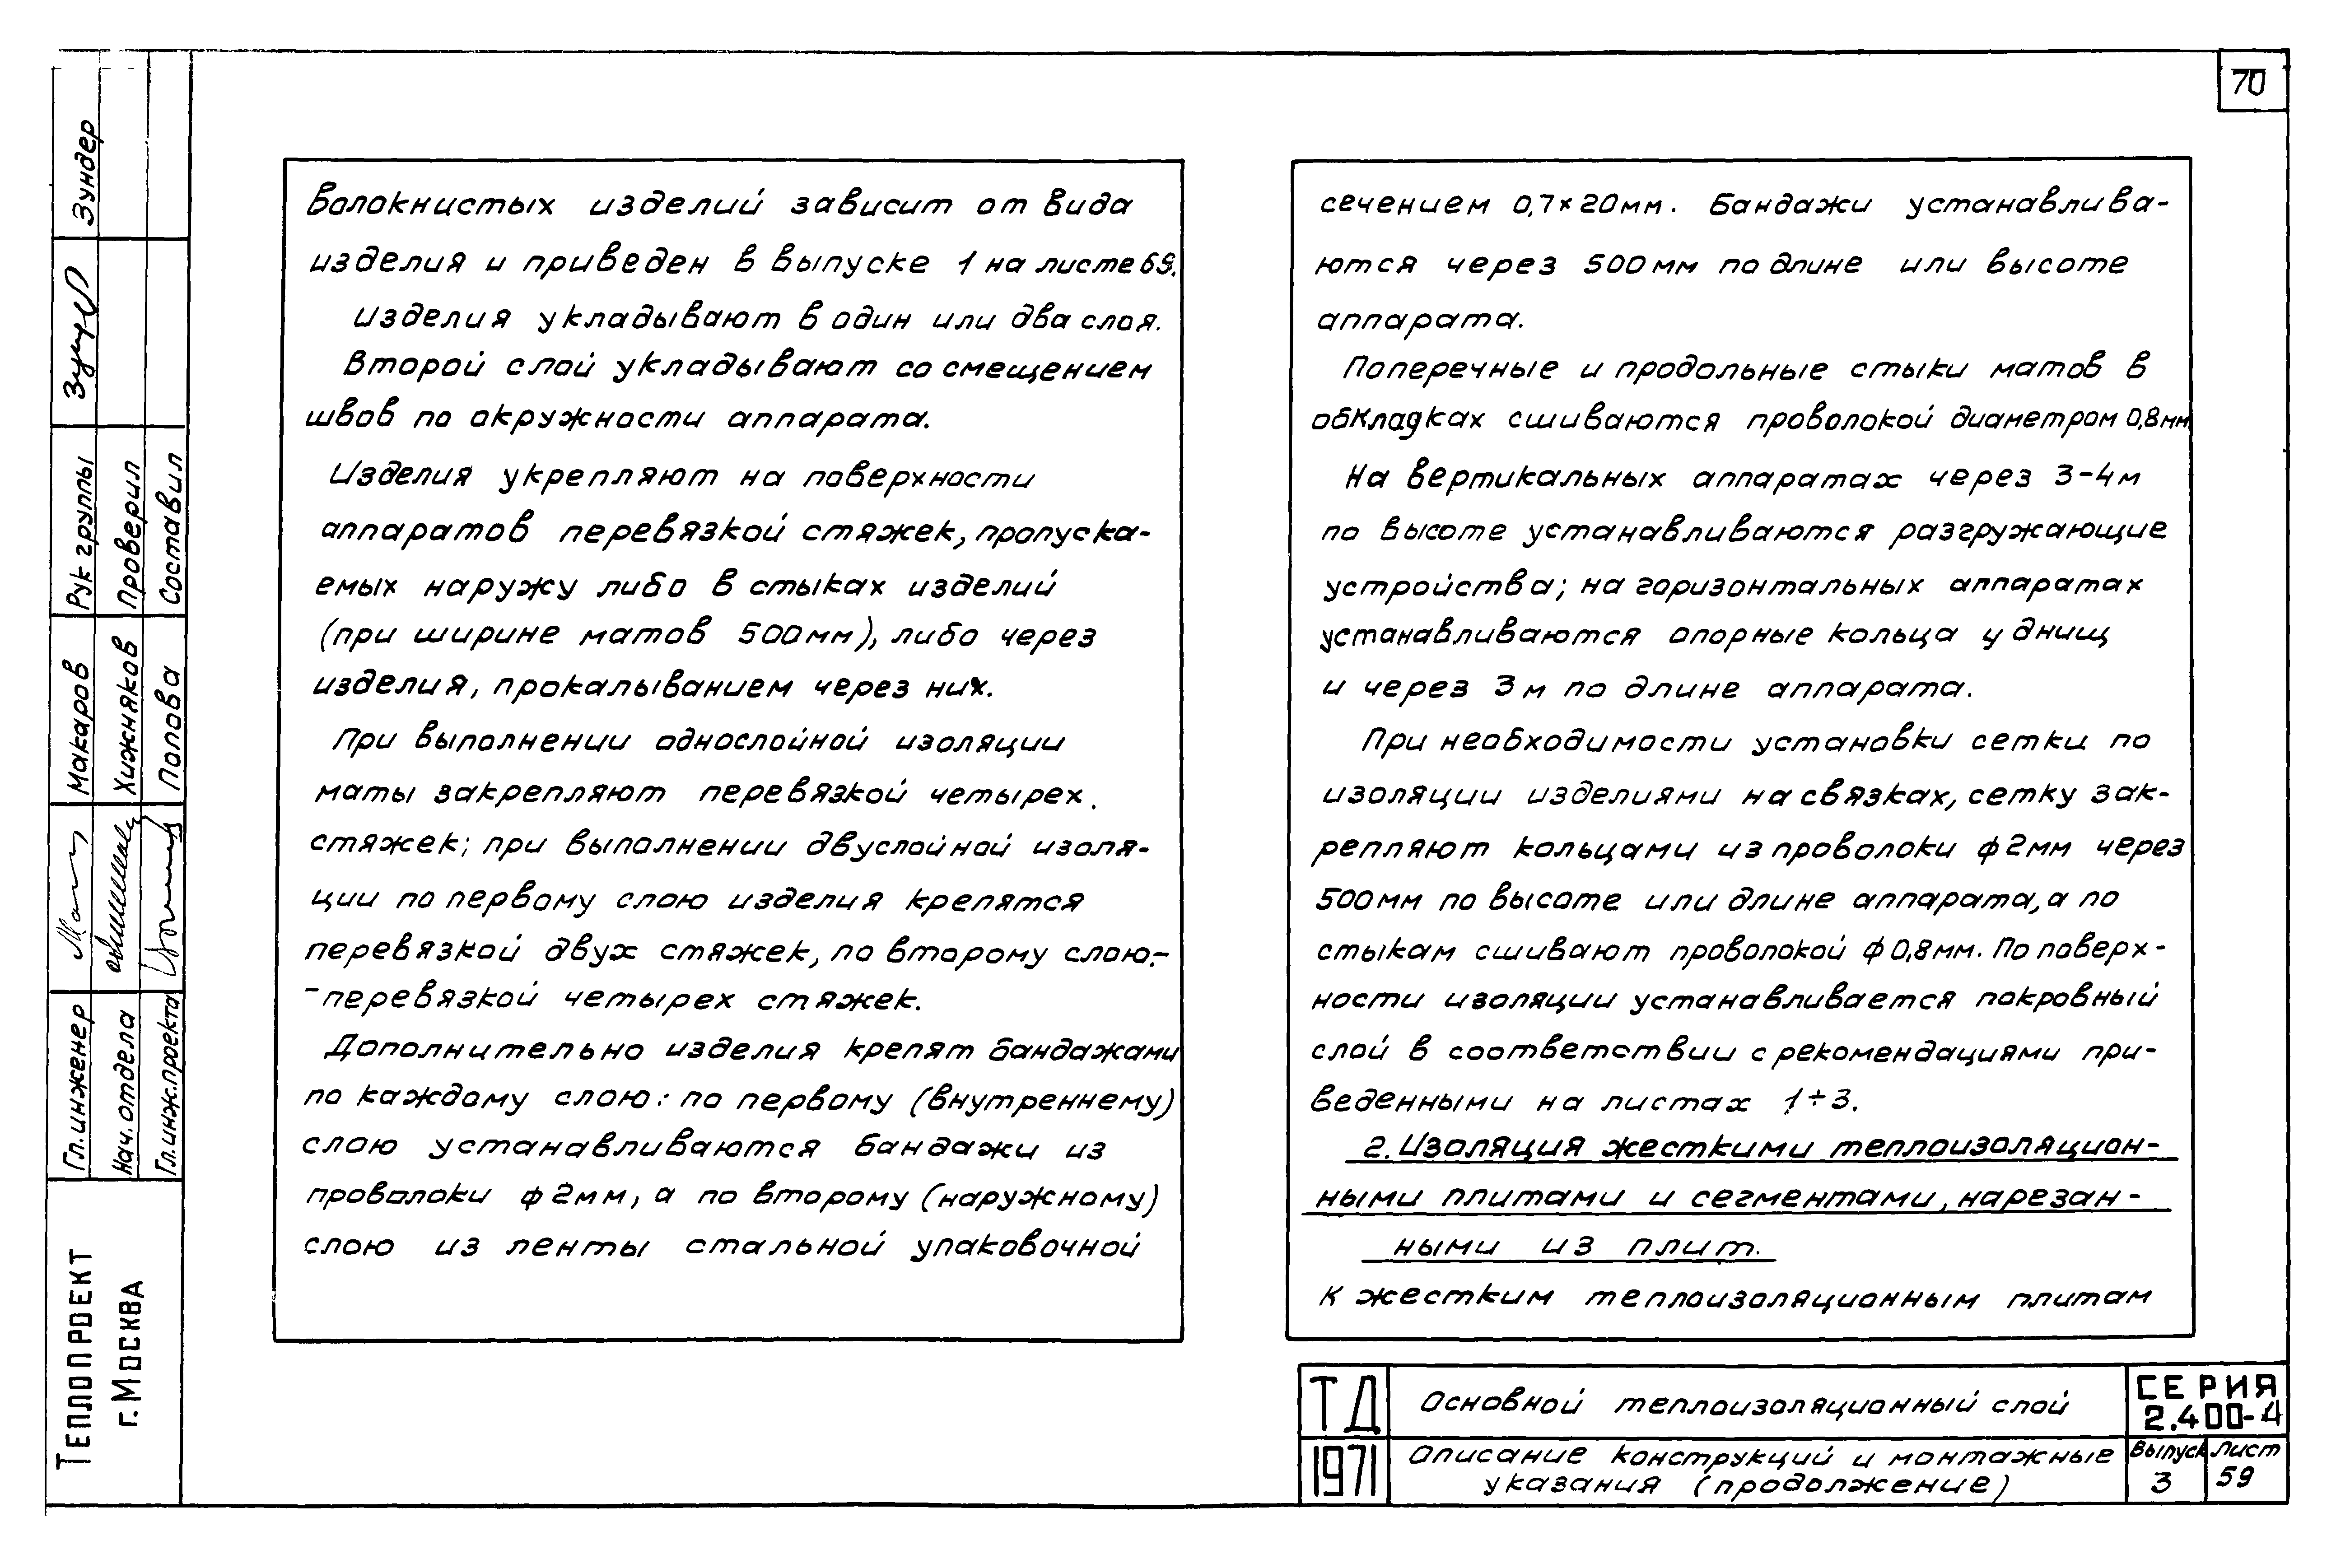 70
волокнистых изделий зависит от вида
изделия и приведен в выпуске 1 на листе 69.
изделия укладывают в один или два слоя.
Второй слой укладывают со смещением
швов по окружности аппарата.
Изделия укрепляют на поверхности
аппаратов перевязкой стяжек, пропуска-
емых наружу либо в стыках изделий
(при ширине матов 500мм), либо через
изделия, прокалыванием через них.
При выполнении однослойной изоляции
маты закрепляют перевязкой четырех
стяжек; при выполнении двуслойной изоля-
ции по первому слою изделия крепятся
перевязкой двух стяжек, по второму слою.-
-перевязкой четырех стяжек.
Дополнительно изделия крепят бандажами
по каждому слою: по первому (внутреннему)
слою устанавливаются бандажи из
проволоки ф 2мм, а по второму (наружному)
слою из ленты стальной упаковочной
сечением 0,7×20мм. Бандажи устанавлива-
ются через 500мм по длине или высоте
аппарата.
Поперечные и продольные стыки матов в
обкладках сшиваются проволокой диаметром 0,8мм.
На вертикальных аппаратах через 3-4м
по высоте устанавливаются разгружающие
устройства; на горизонтальных аппаратах
устанавливаются опорные кольца у днищ
и через 3м по длине аппарата.
При необходимости установки сетки по
изоляции изделиями на связках, сетку зак-
репляют кольцами из проволоки ф 2мм через
500мм по высоте или длине аппарата, а по
стыкам сшивают проволокой ф 0,8мм. По поверх-
ности изоляции устанавливается покровный
слой в соответствии с рекомендациями при-
веденными на листах 1÷3.
2. Изоляция жесткими теплоизоляцион-
ными плитами и сегментами, нарезан-
ными из плит.
К жестким теплоизоляционным плитам
ТД
1971
Основной теплоизоляционный слой
Описание конструкций и монтажные
указания (продолжение)
СЕРИЯ
2.400-4
Выпуск
3
Лист
59
Теплопроект
г. Москва
Гл. инженер Макаров Рук группы Зундер
Нач. отдела Хижняков Проверил
Гл. инж. проекта Попова Составил